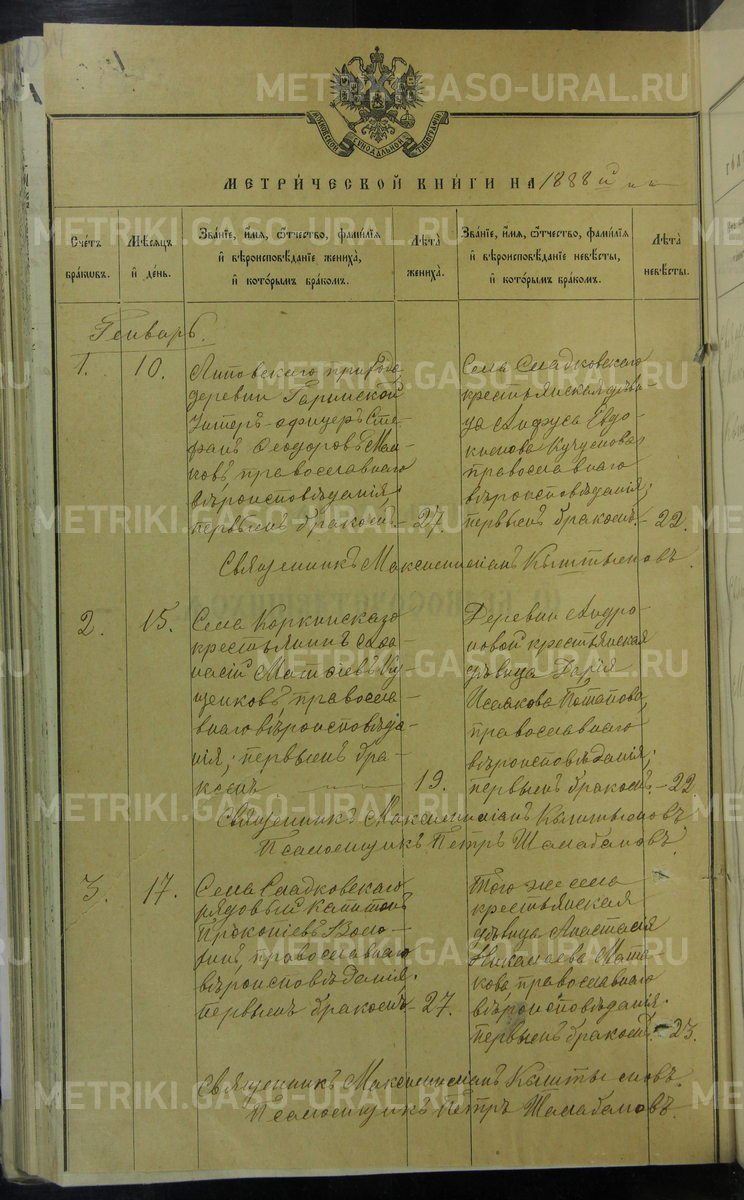 МЕТРИЧЕСКОЙ КНИГИ НА 1888 й
Счетъ браковъ.
Мѣсяцъ и день.
Званіе, имя, отчество, фамилія и вѣроисповѣданіе жениха, и которымъ бракомъ.
Лѣта жениха.
Званіе, имя, отчество, фамилія и вѣроисповѣданіе невѣсты, и которымъ бракомъ.
Лѣта невѣсты.
Генварь.
1.
10.
Липовскаго прихода
деревни Гаринской
Унтеръ-офицеръ Сте-
фанъ Ѳеодоровъ
православнаго
вѣроисповѣданія,
первымъ бракомъ
27.
Села Сладковскаго
крестьянская дѣви-
ца Анфуса Евдо-
кимова
православнаго
вѣроисповѣданія;
первымъ бракомъ.
22.
Священникъ Максимиліанъ
2.
15.
Села Коркинскаго
крестьянинъ Аѳа-
насій
православ-
наго вѣроисповѣда-
нія, первымъ бра-
комъ
19.
Деревни Андро-
новой крестьянская
дѣвица Дарія
Исаакова Потапова,
православнаго
вѣроисповѣданія;
первымъ бракомъ.
22
Священникъ Максимиліанъ
Псаломщикъ Петръ Шалабановъ.
3.
17.
Села Сладковскаго
рядовый Капитонъ
Прокопіевъ
православнаго
вѣроисповѣданія.
первымъ бракомъ
27.
Того же села
крестьянская
дѣвица Анастасія
Николаева
православнаго
вѣроисповѣданія.
первымъ бракомъ.
23.
Священникъ Максимиліанъ
Псаломщикъ Петръ Шалабановъ.
METRIKI.GASO-URAL.RU